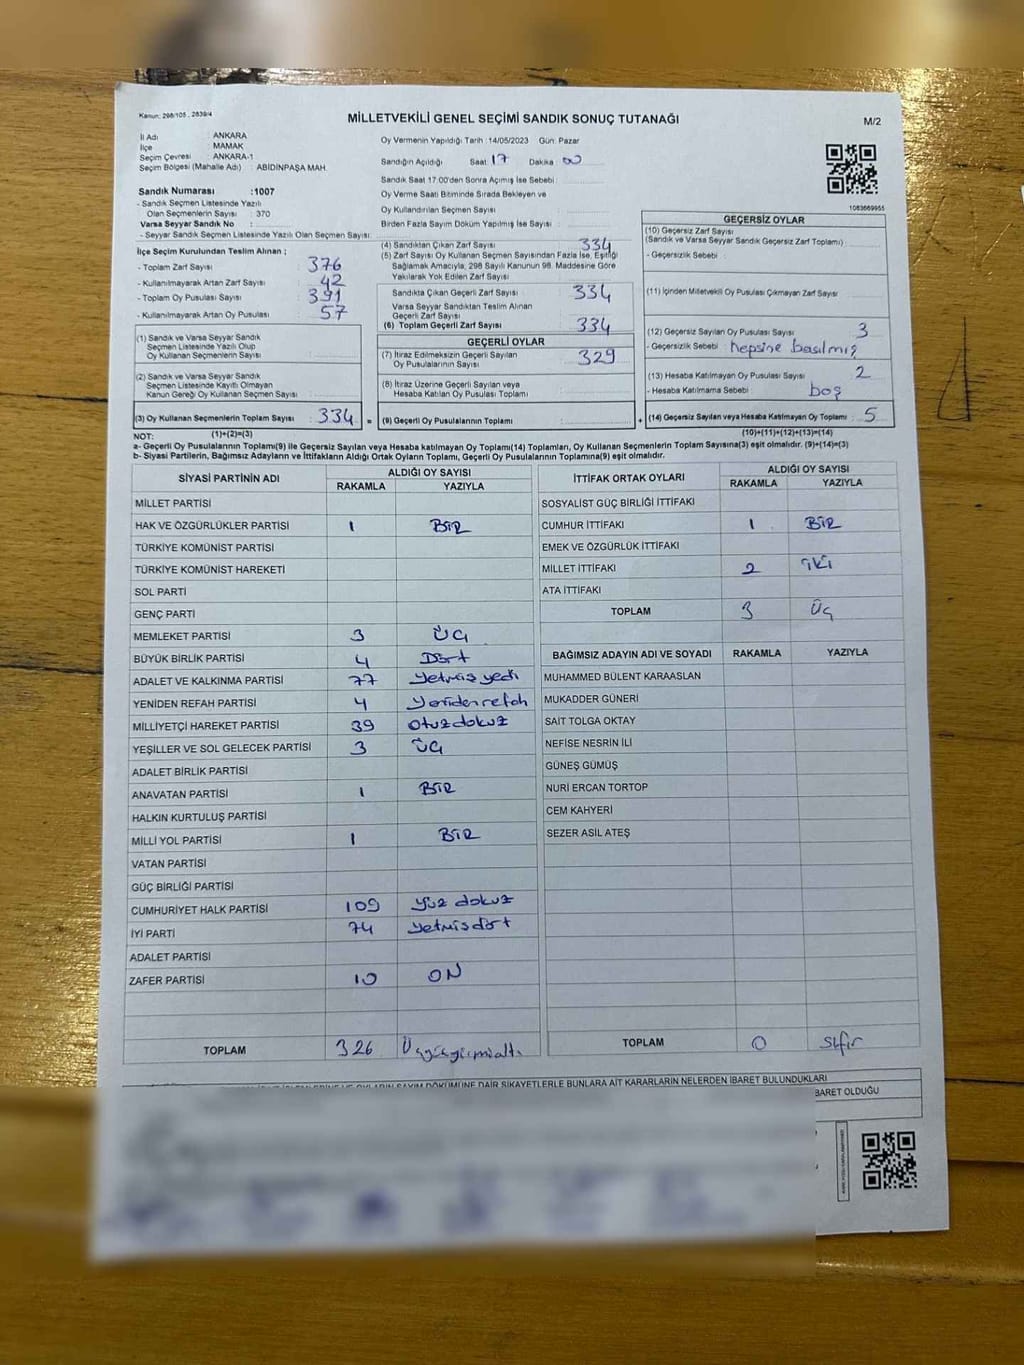 Kanun: 298/105 , 2839/4
MİLLETVEKİLİ GENEL SEÇİMİ SANDIK SONUÇ TUTANAĞI
M/2
İl Adı ANKARA
İlçe MAMAK
Seçim Çevresi : ANKARA-1
Seçim Bölgesi (Mahalle Adı) : ABİDİNPAŞA MAH.
Oy Vermenin Yapıldığı Tarih :14/05/2023 Gün: Pazar
Sandığın Açıldığı Saat 17 Dakika 00
Sandık Saat 17:00'den Sonra Açılmış İse Sebebi :
Oy Verme Saati Bitiminde Sırada Bekleyen ve
Oy Kullandırılan Seçmen Sayısı :
Birden Fazla Sayım Döküm Yapılmış İse Sayısı :
1083669955
Sandık Numarası :1007
- Sandık Seçmen Listesinde Yazılı
Olan Seçmenlerin Sayısı : 370
Varsa Seyyar Sandık No :
- Seyyar Sandık Seçmen Listesinde Yazılı Olan Seçmen Sayısı:
İlçe Seçim Kurulundan Teslim Alınan ;
- Toplam Zarf Sayısı : 376
- Kullanılmayarak Artan Zarf Sayısı : 42
- Toplam Oy Pusulası Sayısı : 391
- Kullanılmayarak Artan Oy Pusulası : 57
(1) Sandık ve Varsa Seyyar Sandık
Seçmen Listesinde Yazılı Olup
Oy Kullanan Seçmenlerin Sayısı :
(2) Sandık ve Varsa Seyyar Sandık
Seçmen Listesinde Kayıtlı Olmayan
Kanun Gereği Oy Kullanan Seçmen Sayısı :
(3) Oy Kullanan Seçmenlerin Toplam Sayısı : 334 =
(1)+(2)=(3)
(4) Sandıktan Çıkan Zarf Sayısı : 334
(5) Zarf Sayısı Oy Kullanan Seçmen Sayısından Fazla İse, Eşitliği
Sağlamak Amacıyla, 298 Sayılı Kanunun 98. Maddesine Göre
Yakılarak Yok Edilen Zarf Sayısı :
Sandıkta Çıkan Geçerli Zarf Sayısı : 334
Varsa Seyyar Sandıktan Teslim Alınan
Geçerli Zarf Sayısı :
(6) Toplam Geçerli Zarf Sayısı : 334
GEÇERLİ OYLAR
(7) İtiraz Edilmeksizin Geçerli Sayılan
Oy Pusulalarının Sayısı : 329
(8) İtiraz Üzerine Geçerli Sayılan veya
Hesaba Katılan Oy Pusulası Toplamı :
(9) Geçerli Oy Pusulalarının Toplamı : +
GEÇERSİZ OYLAR
(10) Geçersiz Zarf Sayısı
(Sandık ve Varsa Seyyar Sandık Geçersiz Zarf Toplamı) :
- Geçersizlik Sebebi :
(11) İçinden Milletvekili Oy Pusulası Çıkmayan Zarf Sayısı :
(12) Geçersiz Sayılan Oy Pusulası Sayısı : 3
- Geçersizlik Sebebi : hepsine basılmış
(13) Hesaba Katılmayan Oy Pusulası Sayısı : 2
- Hesaba Katılmama Sebebi : boş
(14) Geçersiz Sayılan veya Hesaba Katılmayan Oy Toplamı : 5
(10)+(11)+(12)+(13)=(14)
NOT:
a- Geçerli Oy Pusulalarının Toplamı(9) ile Geçersiz Sayılan veya Hesaba katılmayan Oy Toplamı(14) Toplamları, Oy Kullanan Seçmenlerin Toplam Sayısına(3) eşit olmalıdır. (9)+(14)=(3)
b- Siyasi Partilerin, Bağımsız Adayların ve İttifakların Aldığı Ortak Oyların Toplamı, Geçerli Oy Pusulalarının Toplamına(9) eşit olmalıdır.
SİYASİ PARTİNİN ADI ALDIĞI OY SAYISI
RAKAMLA YAZIYLA
MİLLET PARTİSİ
HAK VE ÖZGÜRLÜKLER PARTİSİ 1 BİR
TÜRKİYE KOMÜNİST PARTİSİ
TÜRKİYE KOMÜNİST HAREKETİ
SOL PARTİ
GENÇ PARTİ
MEMLEKET PARTİSİ 3 ÜÇ
BÜYÜK BİRLİK PARTİSİ 4 Dört
ADALET VE KALKINMA PARTİSİ 77 Yetmiş yedi
YENİDEN REFAH PARTİSİ 4 Yenidenrefah
MİLLİYETÇİ HAREKET PARTİSİ 39 otuzdokuz
YEŞİLLER VE SOL GELECEK PARTİSİ 3 ÜÇ
ADALET BİRLİK PARTİSİ
ANAVATAN PARTİSİ 1 BİR
HALKIN KURTULUŞ PARTİSİ
MİLLİ YOL PARTİSİ 1 BİR
VATAN PARTİSİ
GÜÇ BİRLİĞİ PARTİSİ
CUMHURİYET HALK PARTİSİ 109 Yüz dokuz
İYİ PARTİ 74 Yetmişdört
ADALET PARTİSİ
ZAFER PARTİSİ 10 ON
TOPLAM 326 Üçyüzyirmialtı
İTTİFAK ORTAK OYLARI ALDIĞI OY SAYISI
RAKAMLA YAZIYLA
SOSYALİST GÜÇ BİRLİĞİ İTTİFAKI
CUMHUR İTTİFAKI 1 BİR
EMEK VE ÖZGÜRLÜK İTTİFAKI
MİLLET İTTİFAKI 2 iki
ATA İTTİFAKI
TOPLAM 3 Üç
BAĞIMSIZ ADAYIN ADI VE SOYADI RAKAMLA YAZIYLA
MUHAMMED BÜLENT KARAASLAN
MUKADDER GÜNERİ
SAİT TOLGA OKTAY
NEFİSE NESRİN İLİ
GÜNEŞ GÜMÜŞ
NURİ ERCAN TORTOP
CEM KAHYERİ
SEZER ASİL ATEŞ
TOPLAM 0 Sıfır
OYLARIN SAYIM DÖKÜMÜNE DAİR ŞİKAYETLERLE BUNLARA AİT KARARLARIN NELERDEN İBARET BULUNDUKLARI
BARET OLDUĞU